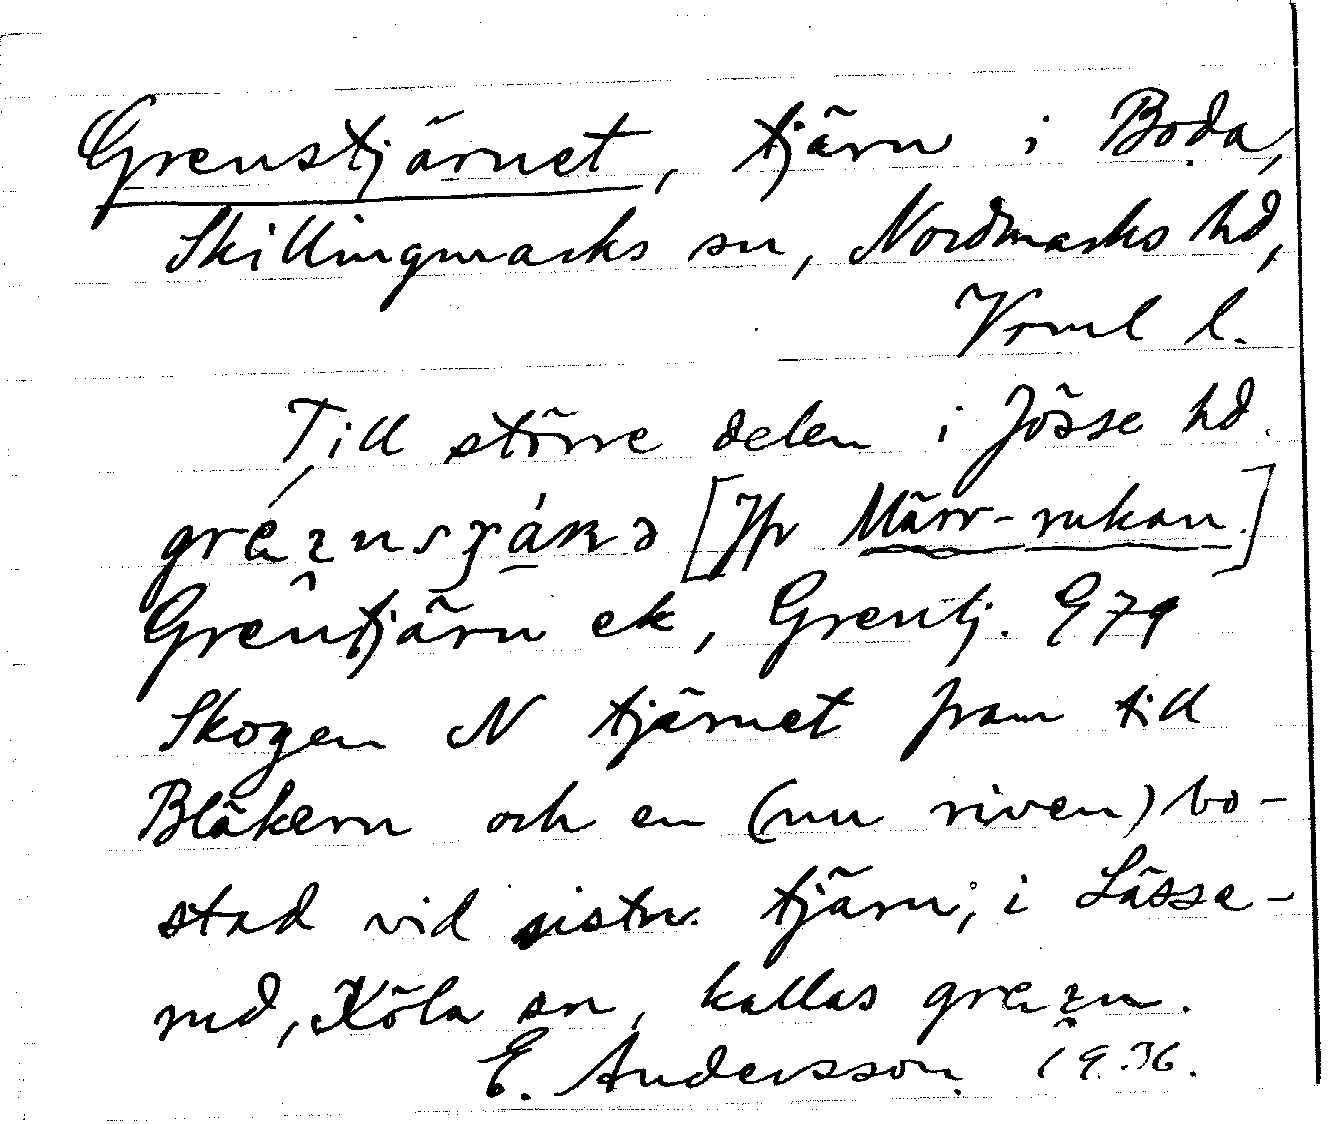 Grenstjärnet, tjärn i Boda,
Skillingmarks sn, Nordmarks hd,
Vrml l.
Till större delen i Jösse hd.
[Jfr Märr-rukan.]
Grentjärn ek, Grentj. G79
Skogen N tjärnet fram till
Bläkern och en (nu riven) bo-
stad vid sistn. tjärn, i Lässe-
rud, Köla sn, kallas
E. Andersson 1936.